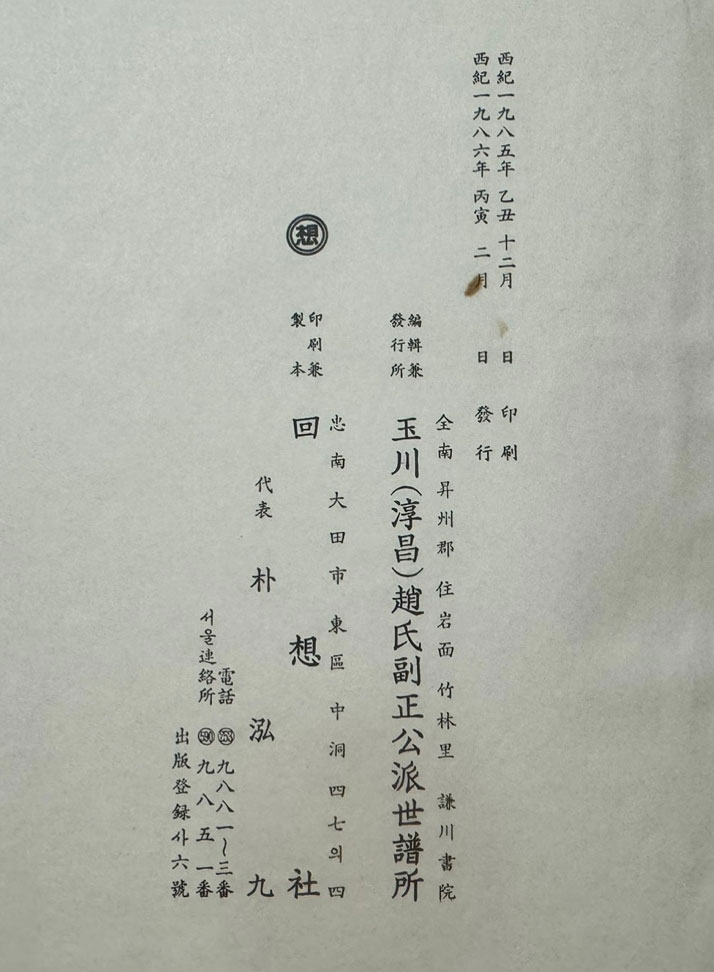 西紀一九八五年 乙丑 十二月 日 印刷
西紀一九八六年 丙寅 二月 日 發行
全南昇州郡 住岩面 竹林里 謙川書院
編輯兼
發行所
玉川(淳昌)趙氏副正公派世譜所
忠南大田市 東區 中洞 四七의四
印刷兼
製本
想
回想社
代表 朴泓九
電話 253 九八八一~三番
서울連絡所 590 九八五一番
出版登録사六號